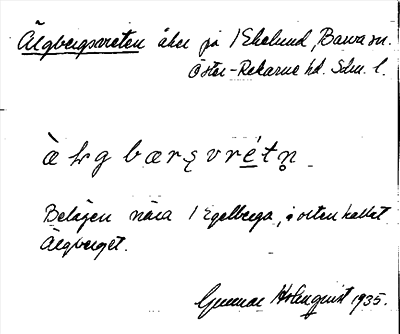 Älgbergsvreten åker på 1 Ekelund, Barva sn.
Öster-Rekarne hd. Sdm. l.
à lg bærs̨vrétn̥
Belägen nära 1 Egelberga, i orten kallat
Älgberget.
Gunnar Holmquist 1935.